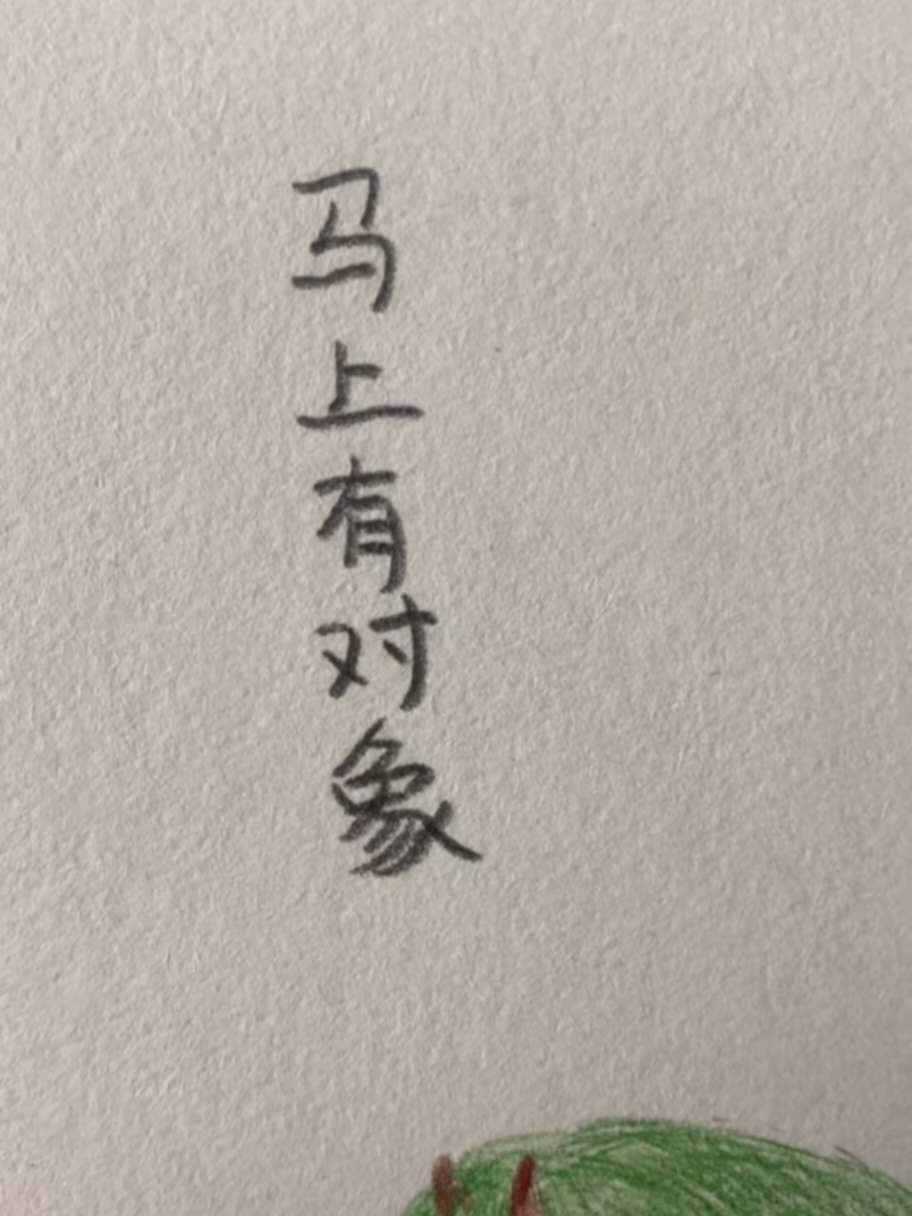 马上有对象